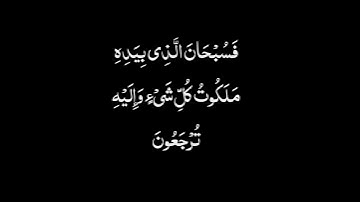 فَسُبْحَانَ الَّذِى بِيَدِهِ
مَلَكُوتُ كُلِّ شَىْءٍ وَإِلَيْهِ
تُرْجَعُونَ